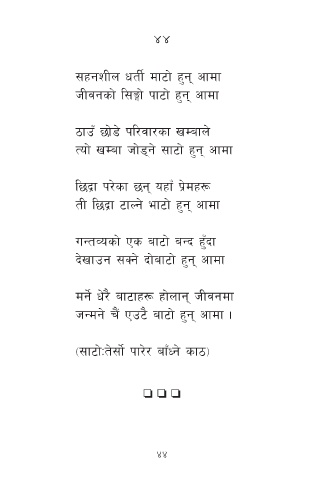 ४४
सहनशील धर्ती माटो हुन् आमा
जीवनको सिङ्गो पाटो हुन् आमा
ठाउँ छोडे परिवारका खम्बाले
त्यो खम्बा जोड्ने साटो हुन् आमा
छिद्रा परेका छन् यहाँ प्रेमहरू
ती छिद्रा टाल्ने भाटो हुन् आमा
गन्तव्यको एक बाटो बन्द हुँदा
देखाउन सक्ने दोबाटो हुन् आमा
मर्ने धेरै बाटाहरू होलान् जीवनमा
जन्मने चैं एउटै बाटो हुन् आमा ।
(साटो:तेर्सो पारेर बाँध्ने काठ)
४४